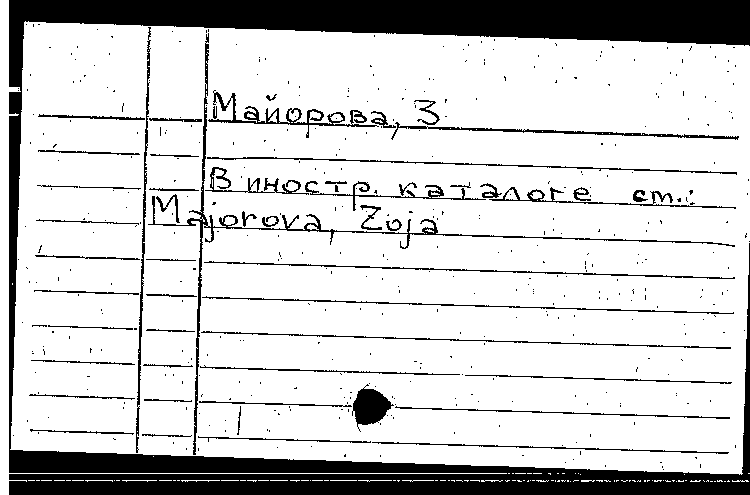 Майорова, З
В иностр. каталоге см.:
Majorova, Zoja